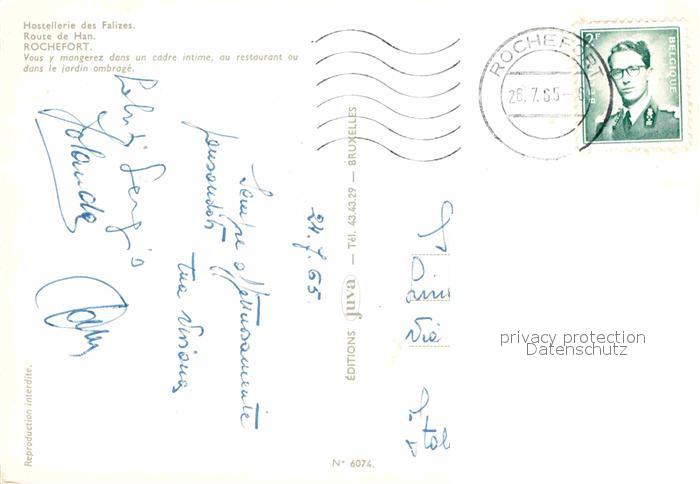 Hostellerie des Falizes.
Route de Han.
ROCHEFORT.
Vous y mangerez dans un cadre intime, au restaurant ou
dans le jardin ombragé.
24.7.65.
Sempre affettuosamente
tua
Sergio
Jolanda
Reproduction interdite.
ÉDITIONS juva — Tél. 43.43.29 — BRUXELLES
N° 6074.
ROCHEFORT
26.7.65
2F
BELGIQUE
Via
privacy protection
Datenschutz